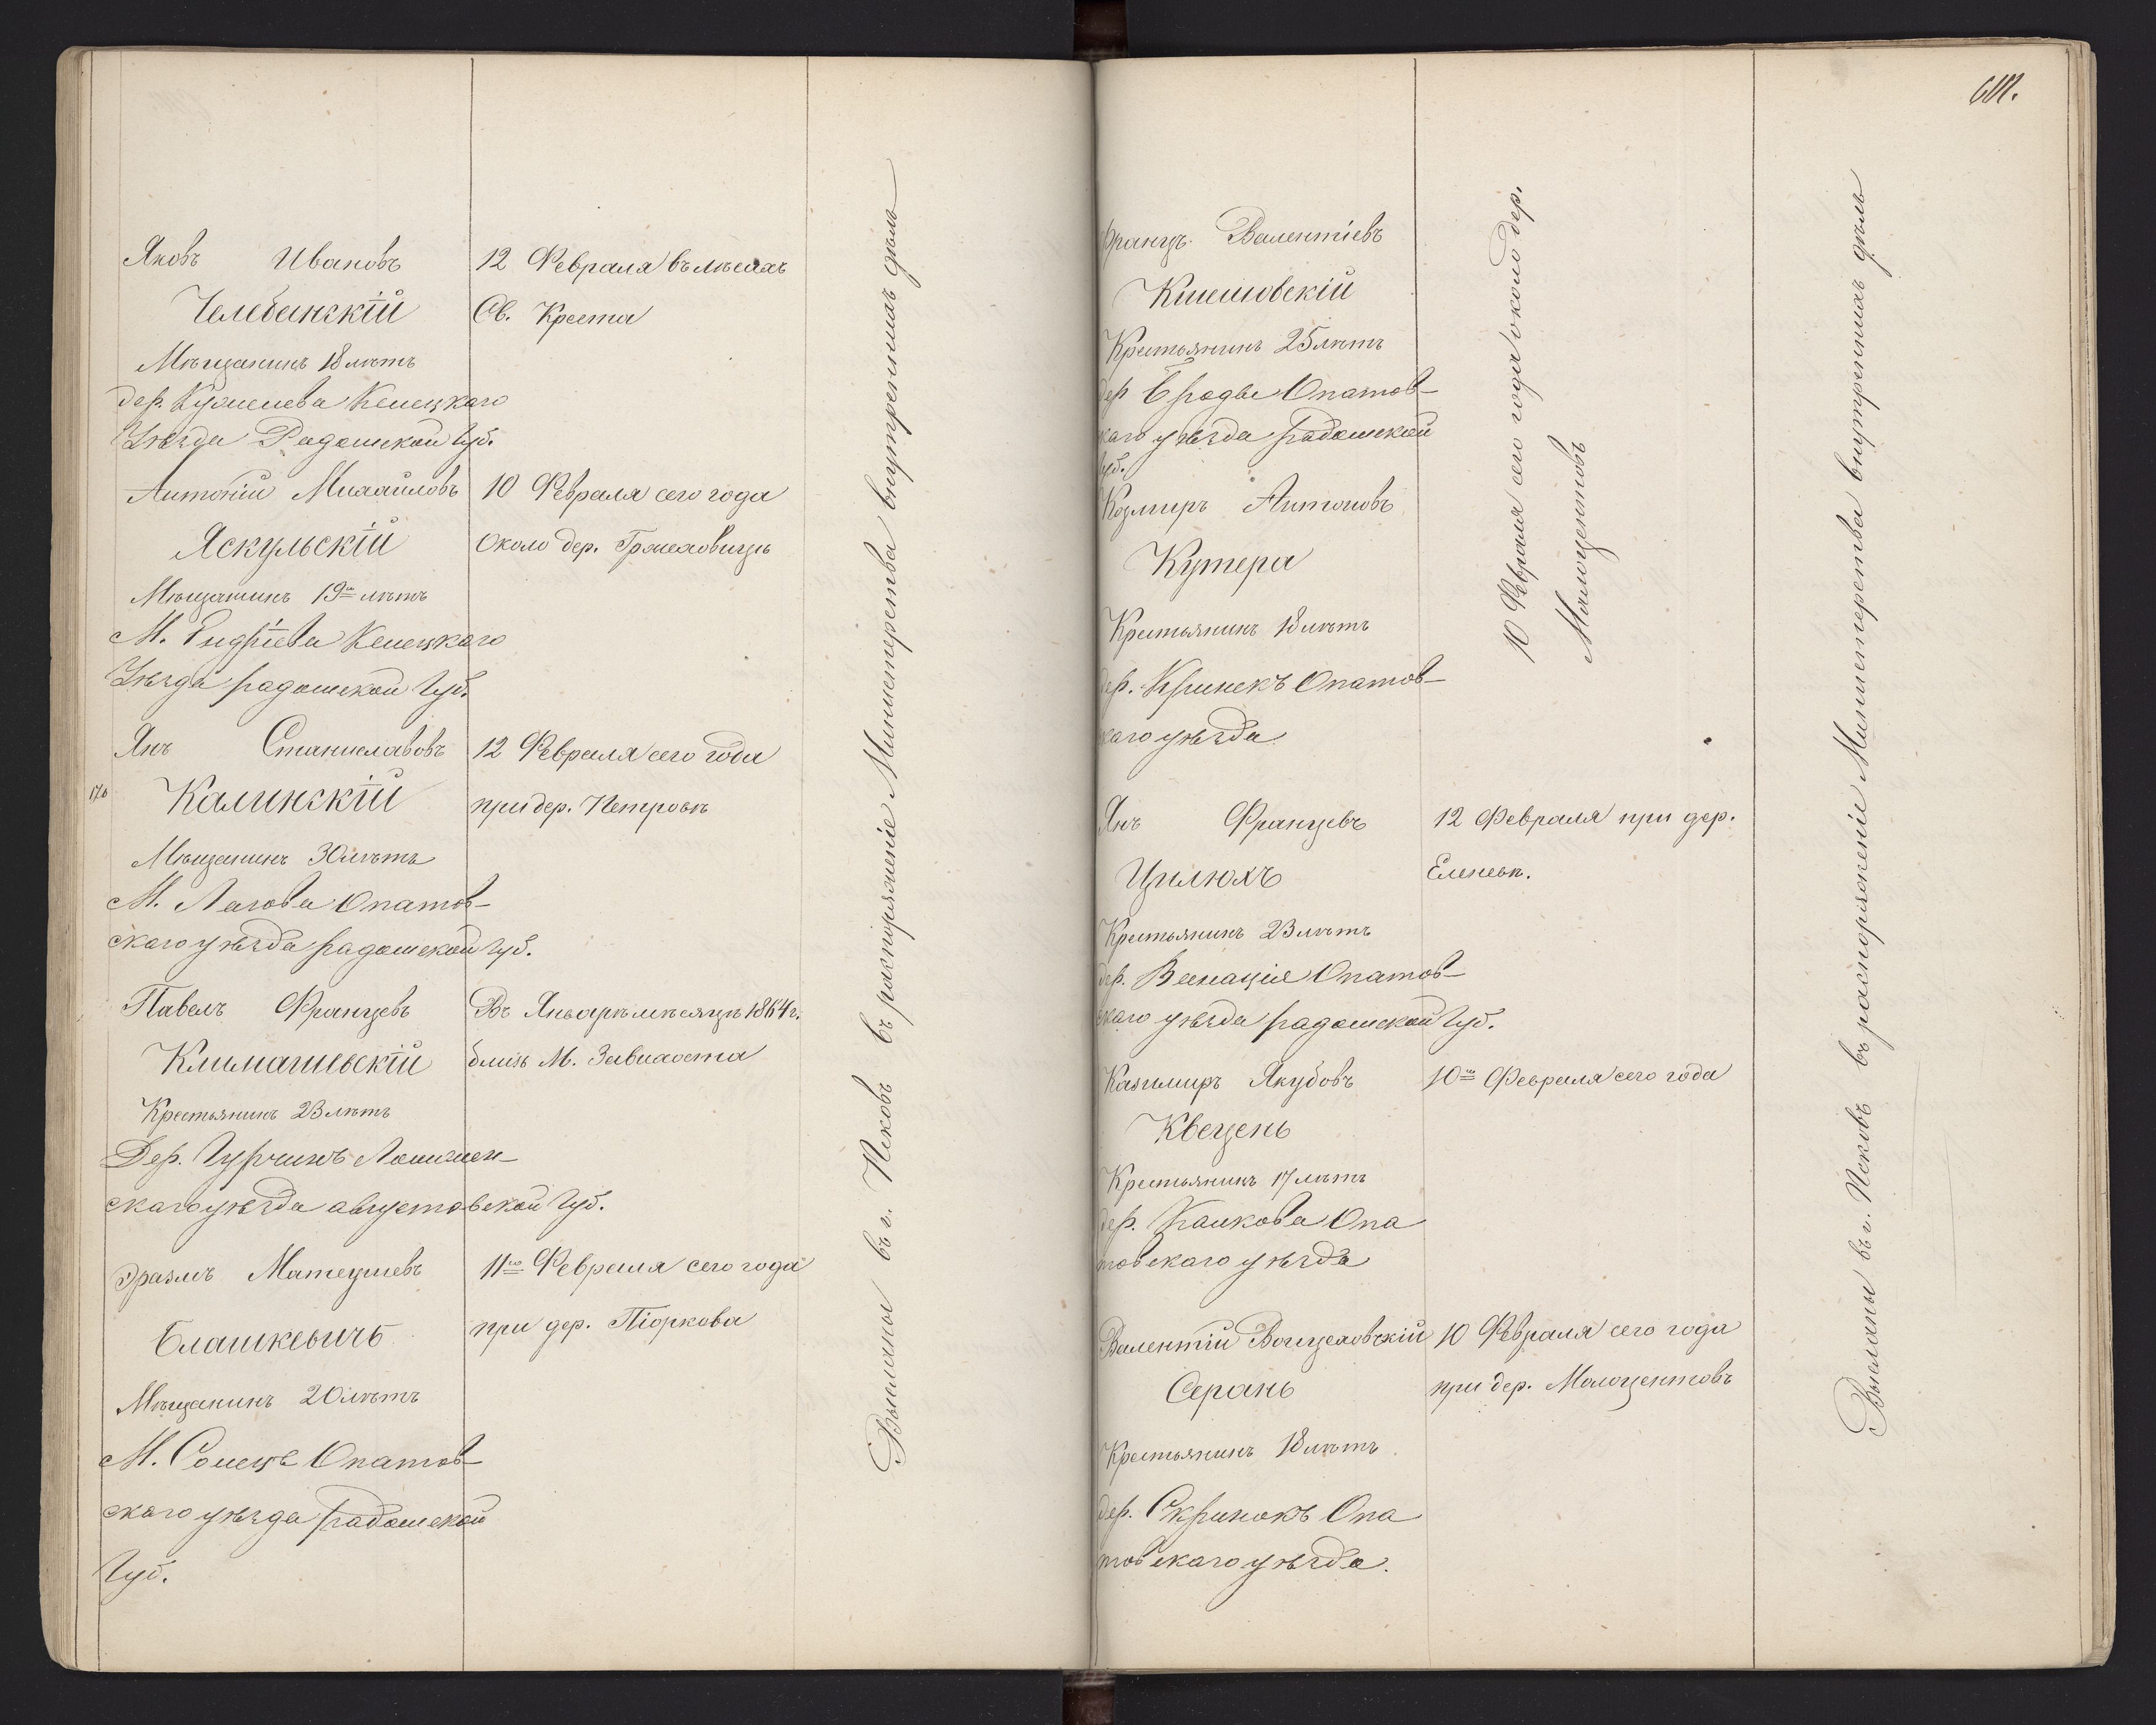 Яковъ Ивановъ
Челебинскій
Мѣщанинъ 18 лѣтъ
дер. Кельцкаго
Уѣзда Радомской Губ.
12 Февраля въ лѣсахъ
Св. Креста
Антоній Михайловъ
Яскульскій
Мѣщанинъ 19ти лѣтъ
М. Кельцкаго
Уѣзда радомской Губ.
10 Февраля сего года
около дер. Гржеховицъ
Янъ Станиславовъ
176
Калинскій
Мѣщанинъ 30 лѣтъ
М. Лагова Опатов-
скаго уѣзда радомской Губ.
12 Февраля сего года
при дер. Петровъ
Павелъ Францевъ
Климашевскій
Крестьянинъ 23 лѣтъ
Дер. Гурчинъ Ломжен-
скаго уѣзда августовской Губ.
Въ Январѣ мѣсяцѣ 1864 г.
близъ М. Завихоста
Эразмъ Матеушевъ
Блашкевичъ
Мѣщанинъ 20 лѣтъ
М. Солецъ Опатов-
скаго уѣзда радомской
Губ.
11го Февраля сего года
при дер. Піоркова
Высланы въ г. Псковъ въ распоряженіе Министерства внутреннихъ дѣлъ
618.
Францъ Валентіевъ
Крестьянинъ 25 лѣтъ
дер Броды Опатов-
скаго уѣзда радомской
Губ.
Козмиръ Антоновъ
Кутера
Крестьянинъ 18 лѣтъ
дер. Кринекъ Опатов-
скаго уѣзда
10 Февраля сего года около дер.
Малоцентовъ
Янъ Францевъ
Цилюхъ
Крестьянинъ 23 лѣтъ
дер. Венація Опатов-
скаго уѣзда радомской Губ.
12 Февраля при дер.
Еленевъ.
Казимиръ Якубовъ
Квецень
Крестьянинъ 17 лѣтъ
дер. Опа
товскаго уѣзда
10го Февраля сего года
Валентій Войцеховскій
Серань
Крестьянинъ 18 лѣтъ
дер. Скринокъ Опа
товскаго уѣзда.
10 Февраля сего года
при дер. Малоцентовъ
Высланы въ г. Псковъ въ распоряженіе Министерства внутреннихъ дѣлъ